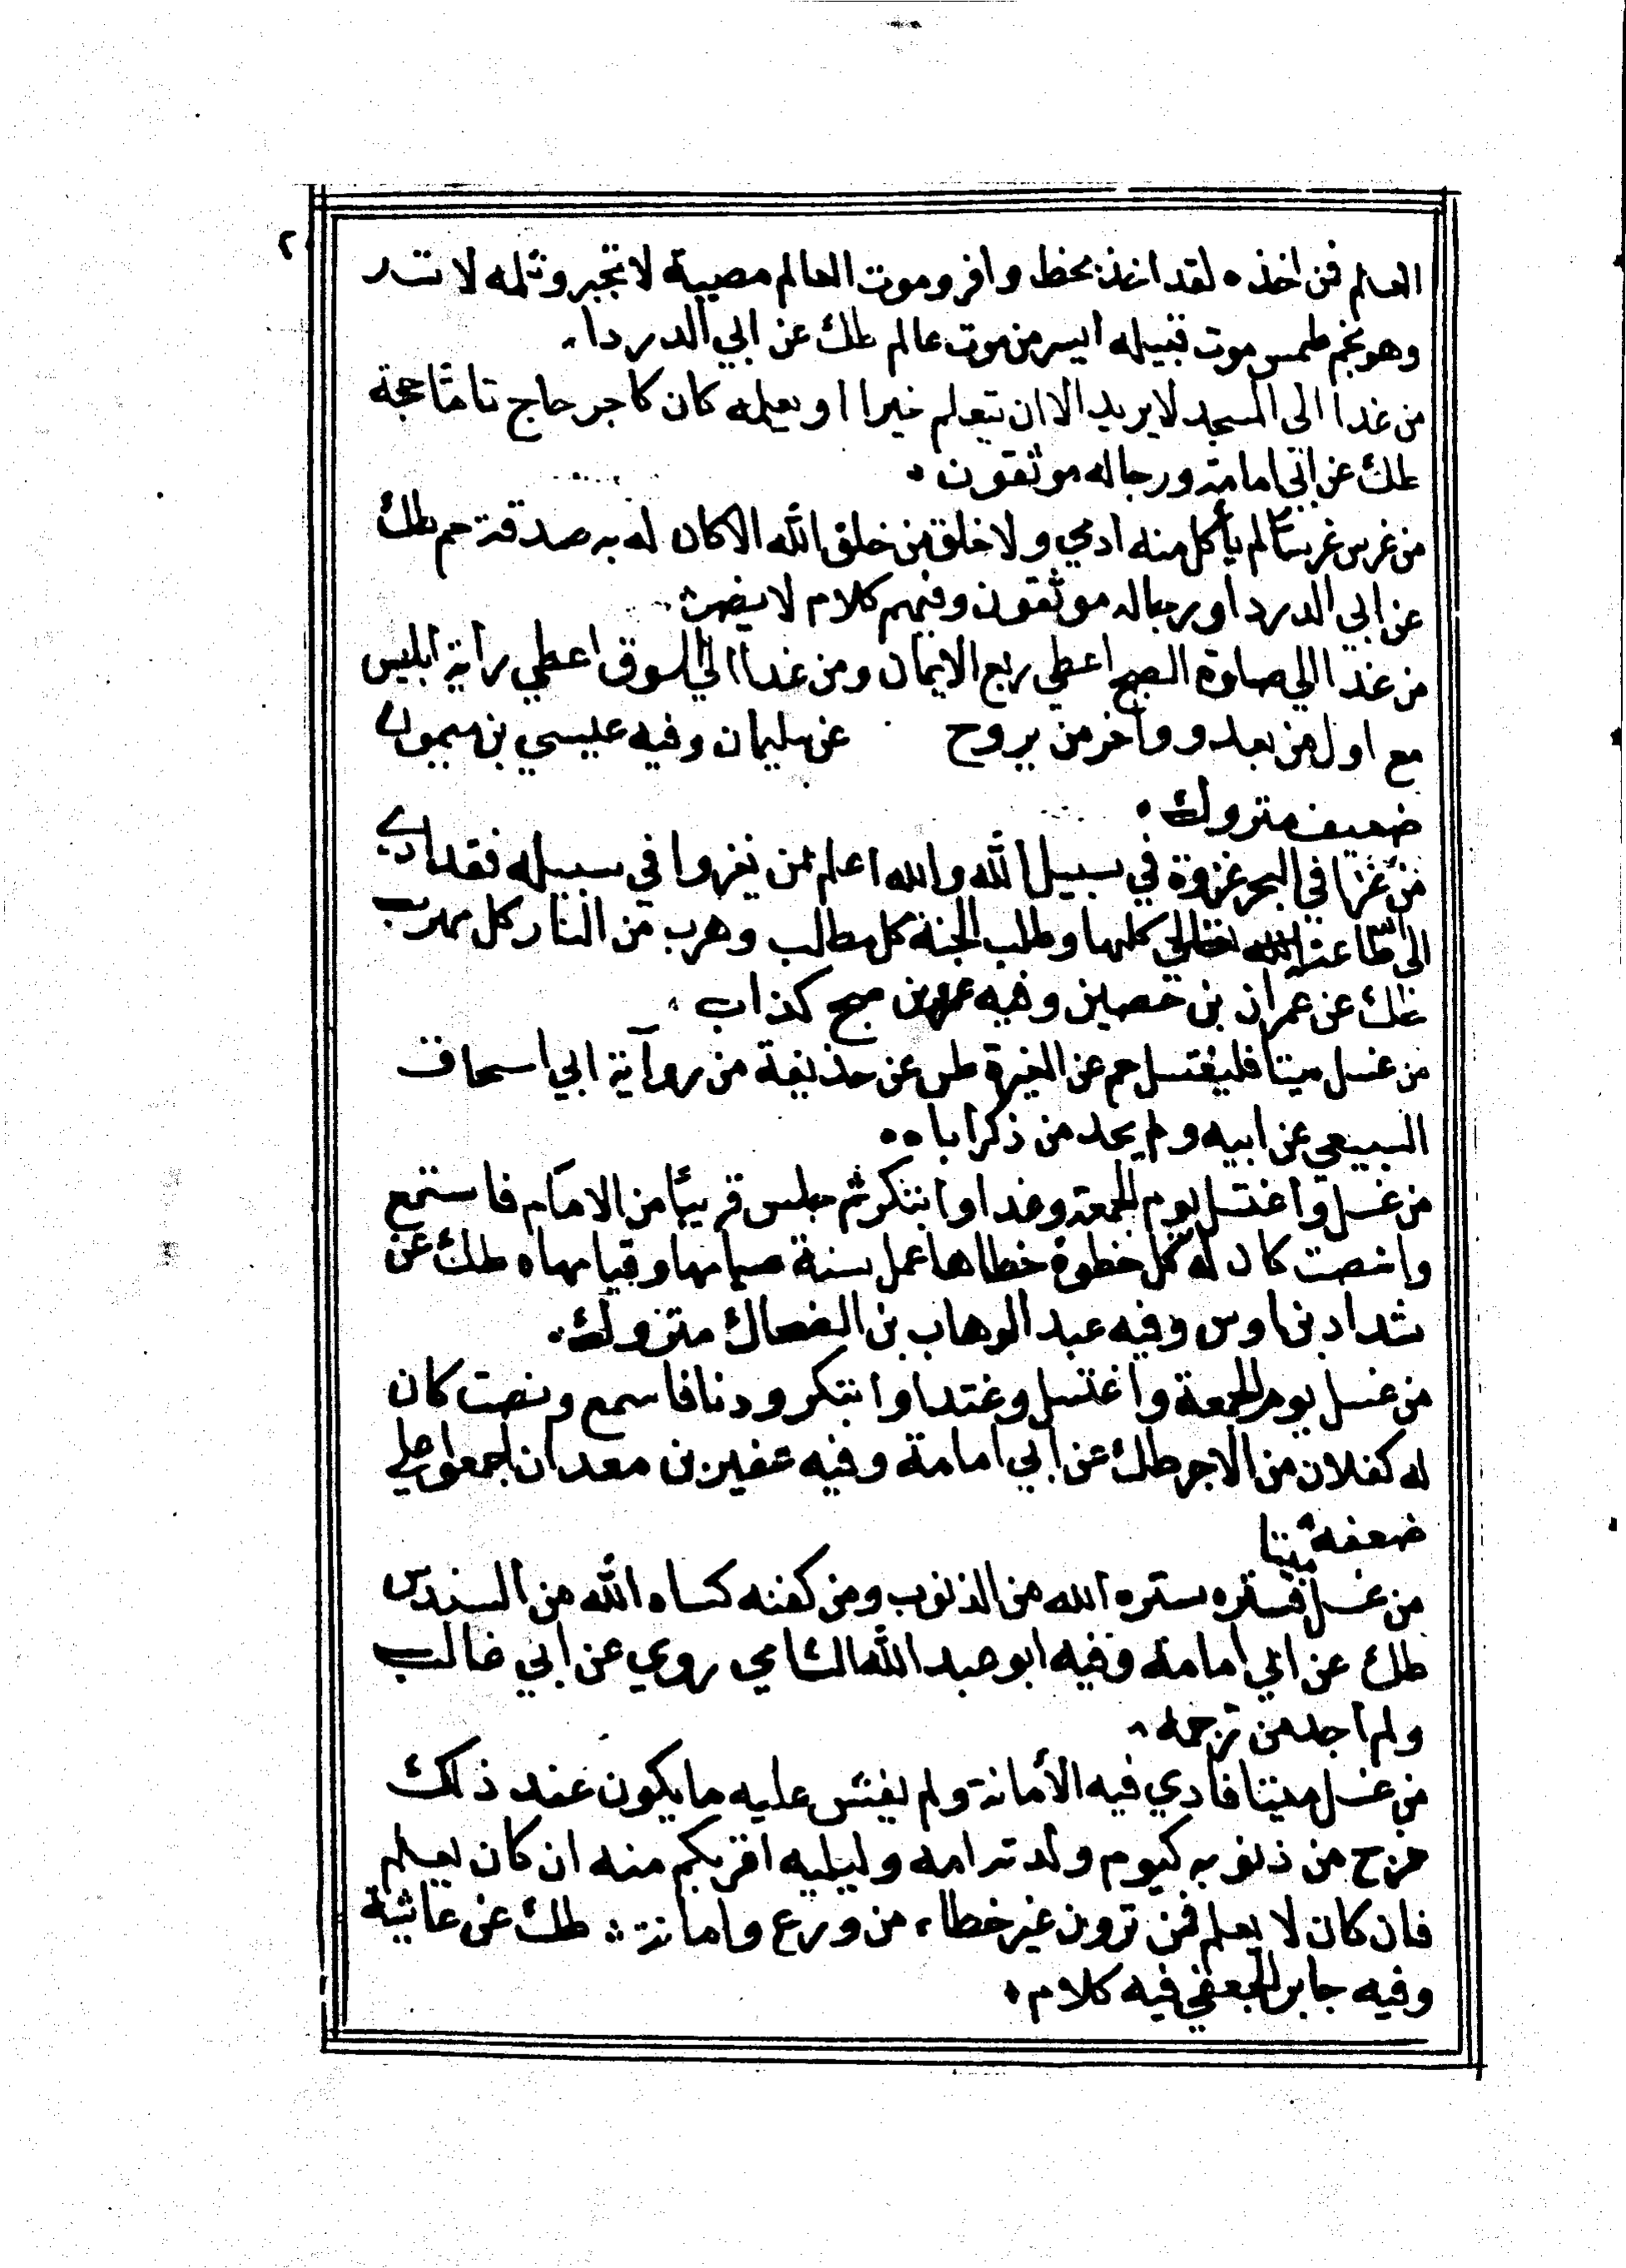 ٢
العلم فمن اخذه لقد اخذ بحظ وافر وموت العالم مصيبة لا تجبر وثلمه لا تسد
وهو نجم طمس موت قبيله ايسر من موت عالم طك عن ابي الدردا
من غدا الى المسجد لا يريد الا ان يتعلم خيرا او يعلمه كان كاجر حاج تاما حجة
طك عن ابي امامة ورجاله موثقون
من غرس غرسا لم يأكل منه ادمي ولا خلق من خلق الله الا كان له به صدقة حم طك
عن ابي الدردا ورجاله موثقون وفيهم كلام لا يضر
من غدا الي صلوة الصبح اعطي ربع الايمان ومن غدا الي السوق اعطي راية ابليس
مع اول من يعدو وآخر من يروح عن سليمان وفيه عيسي بن ميمون
ضعيف متروك
من غزا في البحر غزوة في سبيل الله والله اعلم بمن يغزوا في سبيله فقد ادي
الي الله طاعته كلها وطلب الجنة كل مطالب وهرب من النار كل مهرب
طك عن عمران بن حصين وفيه عمر بن صبح كذاب
من غسل ميتا فليغتسل حم عن المغيرة طس عن حذيفة من رواية ابي اسحاق
السبيعي عن ابيه ولم يجد من ذكر اباه
من غسل واغتسل يوم الجمعة وغدا وابتكر ثم جلس قريبا من الامام فاستمع
وانصت كان له كل خطوة خطاها عمل سنة صيامها وقيامها طك عن
شداد بن اوس وفيه عبد الوهاب بن الضحاك متروك
من غسل يوم الجمعة واغتسل وغتدا وابتكر ودنا فاسمع ونصت كان
له كفلان من الاجر طك عن ابي امامة وفيه عفير بن معدان اجمعوا علي
ضعفه
من غسل ميتا فستره ستره الله من الذنوب ومن كفنه كساه الله من السندس
طك عن ابي امامة وفيه ابو عبد الله الشامي روي عن ابي غالب
ولم اجد من ترجمه
من غسل ميتا فادي فيه الأمانة ولم يفش عليه ما يكون عند ذلك
خرج من ذنوبه كيوم ولدته امه وليليه اقربكم منه ان كان يعلم
فان كان لا يعلم فمن ترون عنده حظا من ورع وامانة طك عن عائشة
وفيه جابر الجعفي فيه كلام